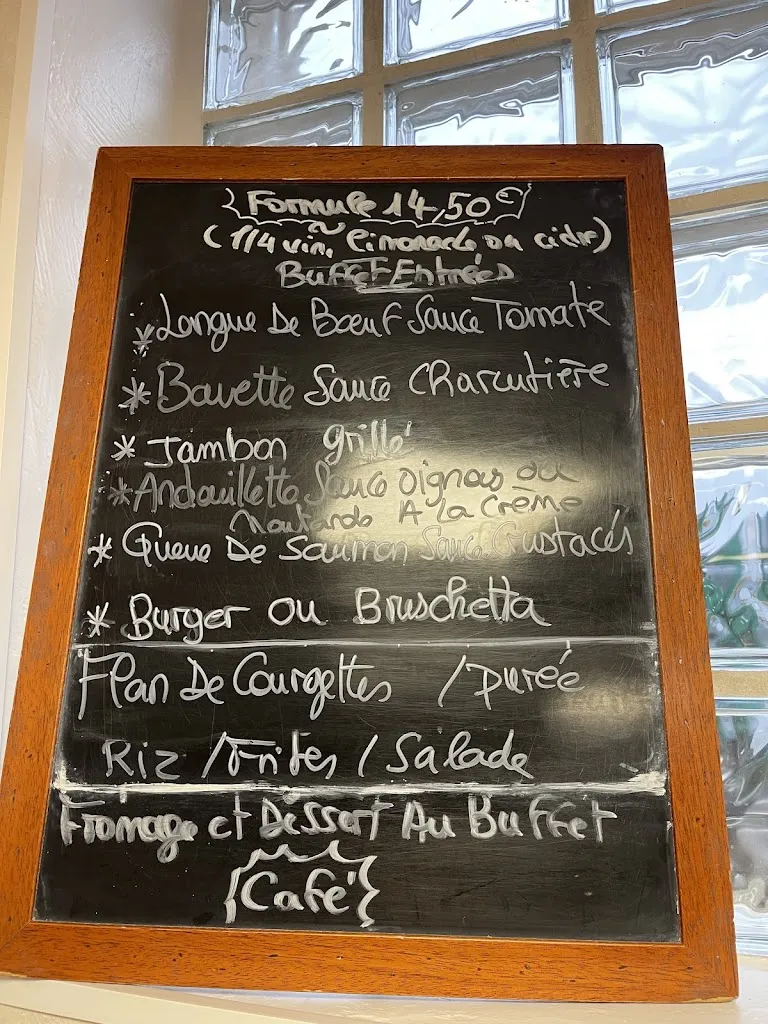 Formule 14,50€
(1/4 vin, limonade ou cidre)
Buffet Entrées
* Langue De Bœuf Sauce Tomate
* Bavette Sauce Charcutière
* Jambon grillé
* Andouillette Sauce oignons ou
Moutarde A La Crème
* Queue De Saumon Sauce Crustacés
* Burger ou Bruschetta
Flan De Courgettes / purée
Riz / Frites / Salade
Fromage et Dessert Au Buffet
{Café}